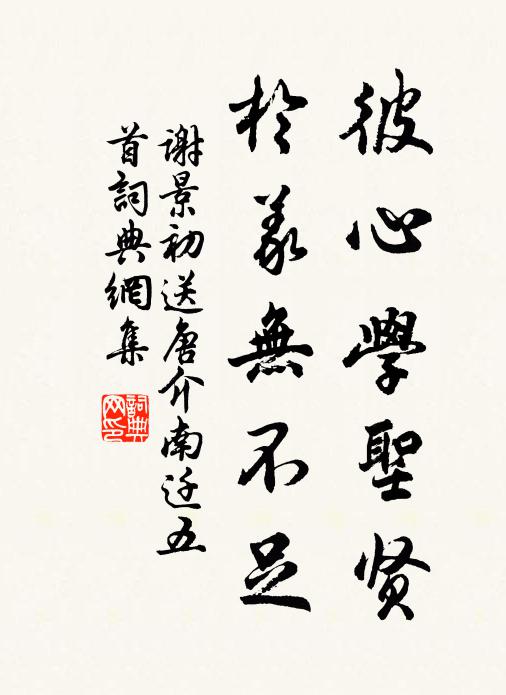 彼心學聖贤
於义無不足
谢景初送唐介南迁五
首詞典網集
詞典
网印